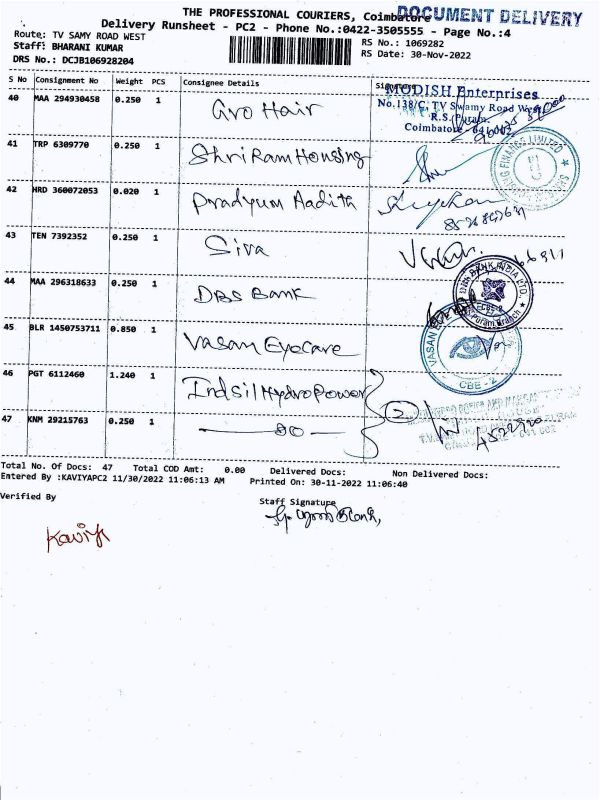 THE PROFESSIONAL COURIERS, Coimbatore
DOCUMENT DELIVERY
Delivery Runsheet - PC2 - Phone No.:0422-3505555 - Page No.:4
Route: TV SAMY ROAD WEST
RS No.: 1069282
Staff: BHARANI KUMAR
RS Date: 30-Nov-2022
DRS No.: DCJB106928204
S No Consignment No Weight PCS Consignee Details
40 MAA 294930458 0.250 1 Gro Hair
MODISH Enterprises
No.138/C, TV Swamy Road West
R.S. Puram,
Coimbatore - 641002
41 TRP 6309770 0.250 1 Shri Ram Housing
42 HRD 360072053 0.020 1 Pradyum Aadith
43 TEN 7392352 0.250 1 Siva
44 MAA 296318633 0.250 1 DBS Bank
BANK INDIA LTD.
45 BLR 1450753711 0.850 1 Vasan Eyecare
VASAN
CBE - 2
46 PGT 6112460 1.240 1 Indsil Hydro Power
2
47 KNM 29215763 0.250 1 — do —
Total No. Of Docs: 47 Total COD Amt: 0.00 Delivered Docs: Non Delivered Docs:
Entered By :KAVIYAPC2 11/30/2022 11:06:13 AM Printed On: 30-11-2022 11:06:40
Verified By
Staff Signature
Kaviya